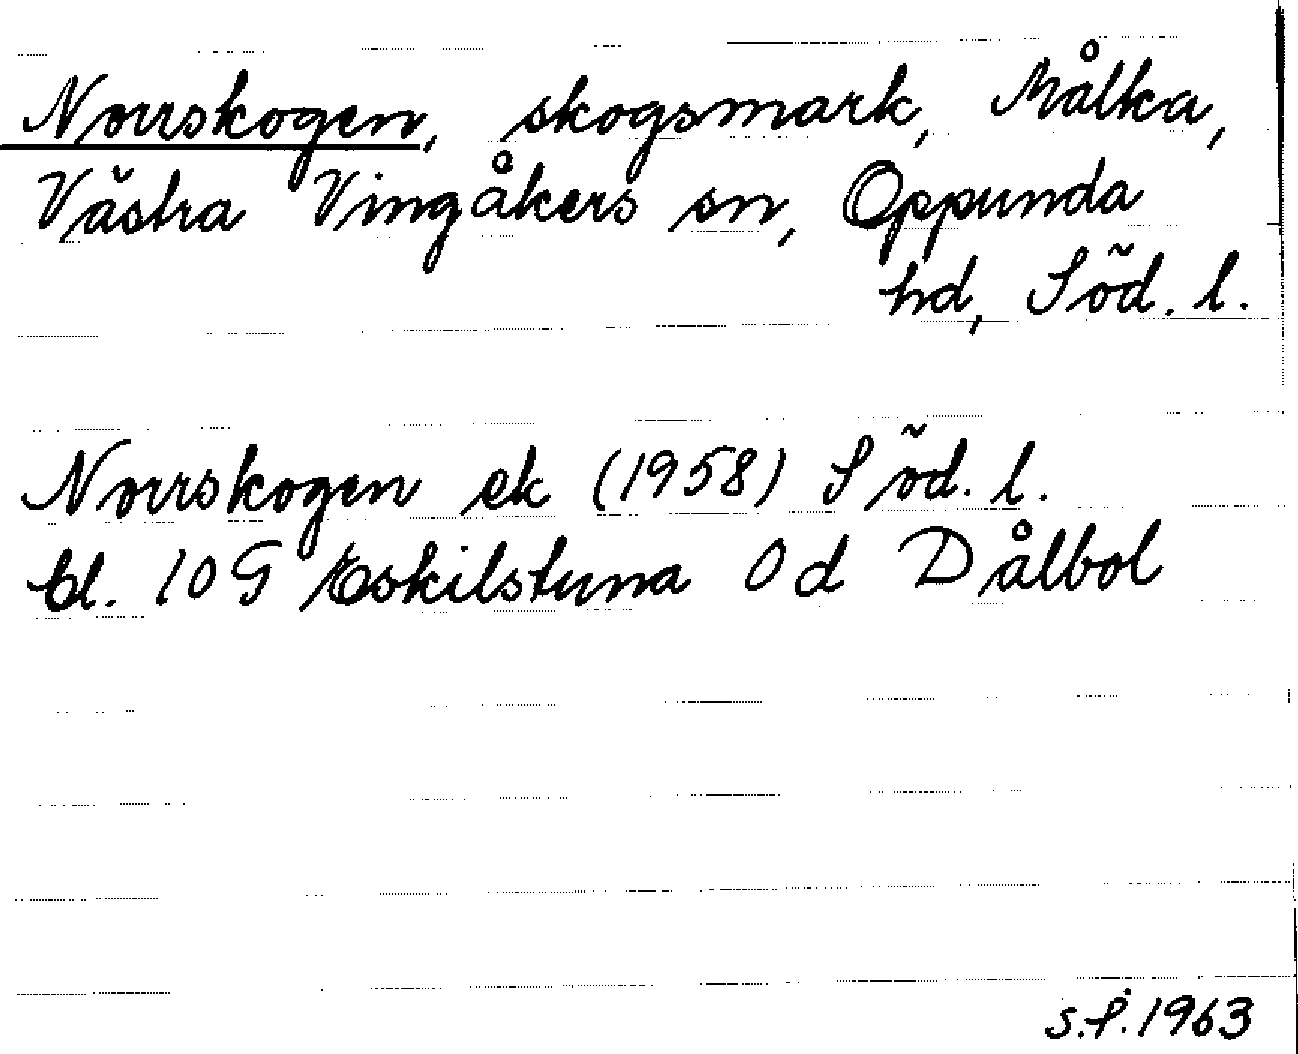 Norrskogen, skogsmark, Målka,
Västra Vingåkers sn, Oppunda
hd, Söd. l.
Norrskogen ek (1958) Söd. l.
bl. 10 G Eskilstuna 0 d Dålbol
s.f. 1963